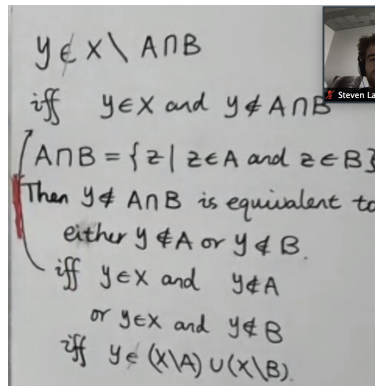 y ∉ X \ A∩B
iff y∈X and y∉ A∩B
Steven La
A∩B = {z | z∈A and z∈B}
Then y∉ A∩B is equivalent to
either y∉A or y∉B.
iff y∈X and y∉A
or y∈X and y∉B
iff y∈ (X\A) ∪ (X\B).